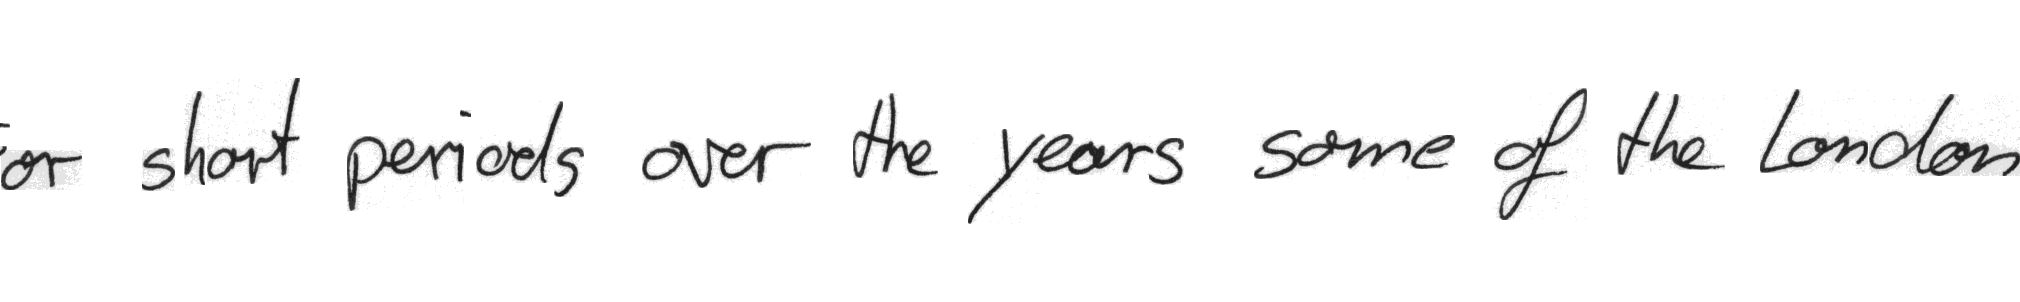 or short periods over the years some of the London